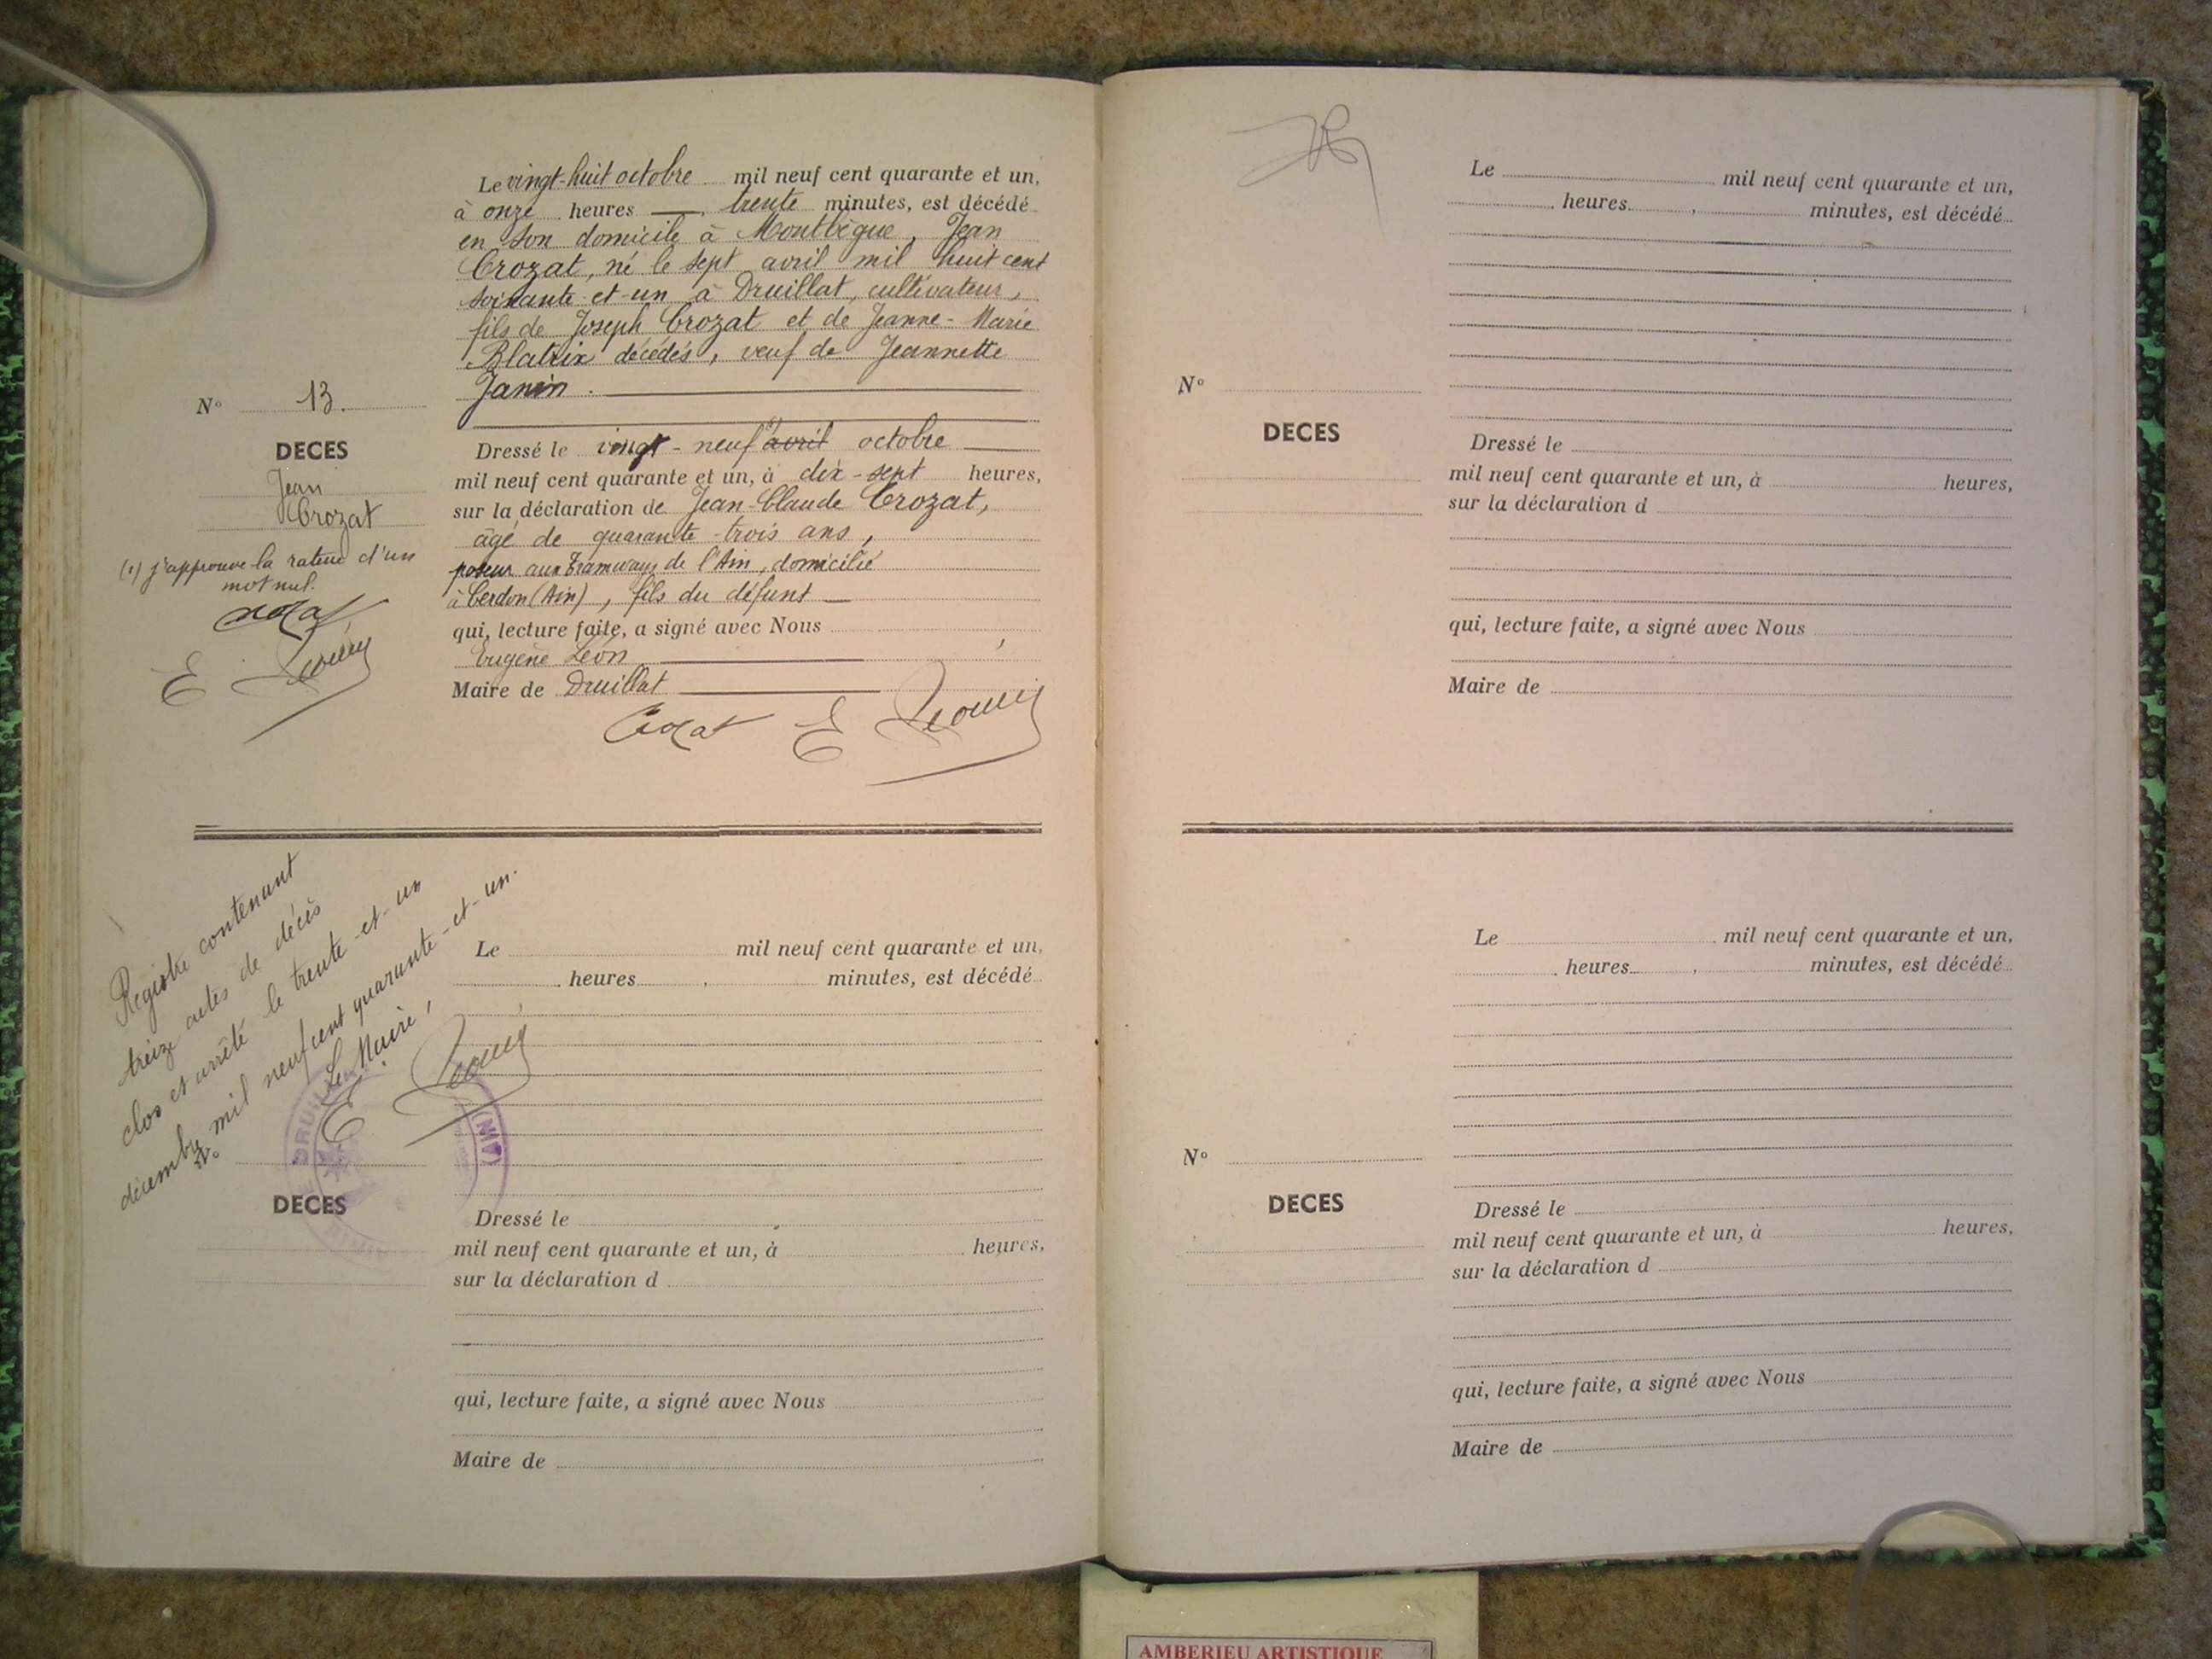 Le vingt-huit octobre mil neuf cent quarante et un,
à onze heures , trente minutes, est décédé
en son domicile à Montbègue, Jean
Crozat, né le sept avril mil huit cent
soixante-et-un à Druillat, cultivateur,
fils de Joseph Crozat et de Jeanne-Marie
Blatrix décédés, veuf de Jeannette
Janin.
N° 13.
DECES
Jean
Crozat
(1) j'approuve la rature d'un
mot nul.
Crozat
E
Dressé le vingt-neuf avril octobre
mil neuf cent quarante et un, à dix-sept heures,
sur la déclaration de Jean-Claude Crozat,
âgé de quarante-trois ans,
poseur aux Tramways de l'Ain, domicilié
à Cerdon (Ain), fils du défunt
qui, lecture faite, a signé avec Nous
Eugène Léon
Maire de Druillat
Crozat E
Registre contenant
treize actes de décès
clos et arrêté le trente-et-un
décembre mil neuf cent quarante-et-un.
Le Maire,
E
Le mil neuf cent quarante et un,
heures , minutes, est décédé
N°
DECES
Dressé le
mil neuf cent quarante et un, à heures,
sur la déclaration d
qui, lecture faite, a signé avec Nous
Maire de
Le mil neuf cent quarante et un,
heures , minutes, est décédé
N°
DECES
Dressé le
mil neuf cent quarante et un, à heures,
sur la déclaration d
qui, lecture faite, a signé avec Nous
Maire de
Le mil neuf cent quarante et un,
heures , minutes, est décédé
N°
DECES
Dressé le
mil neuf cent quarante et un, à heures,
sur la déclaration d
qui, lecture faite, a signé avec Nous
Maire de
AMBERIEU ARTISTIQUE